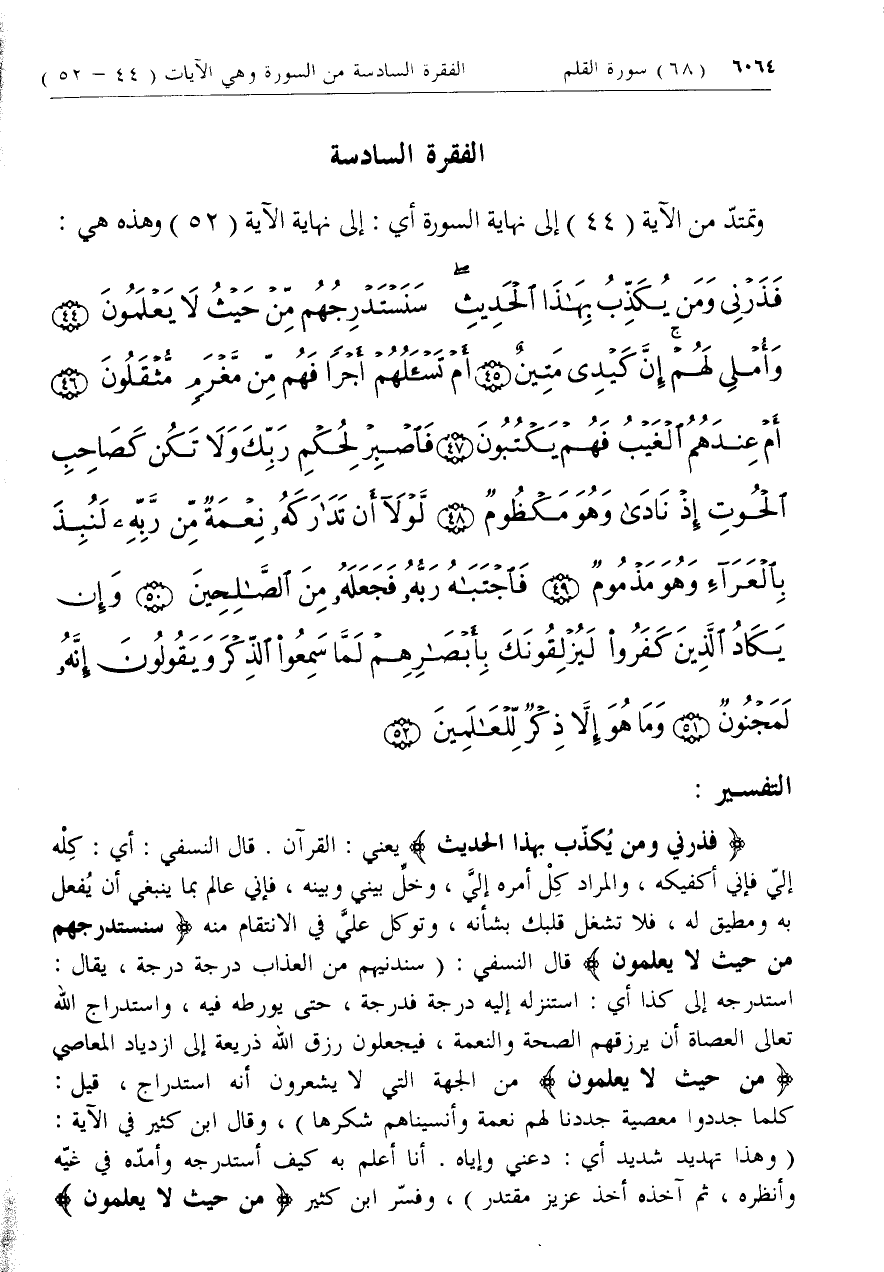 ٦٠٦٤ ( ٦٨ ) سورة القلم الفقرة السادسة من السورة وهي الآيات ( ٤٤ – ٥٢ )
الفقرة السادسة
وتمتدّ من الآية ( ٤٤ ) إلى نهاية السورة أي : إلى نهاية الآية ( ٥٢ ) وهذه هي :
فَذَرْنِى وَمَن يُكَذِّبُ بِهَـٰذَا ٱلْحَدِيثِ ۖ سَنَسْتَدْرِجُهُم مِّنْ حَيْثُ لَا يَعْلَمُونَ ٤٤
وَأُمْلِى لَهُمْ ۚ إِنَّ كَيْدِى مَتِينٌ ٤٥ أَمْ تَسْـَٔلُهُمْ أَجْرًا فَهُم مِّن مَّغْرَمٍ مُّثْقَلُونَ ٤٦
أَمْ عِندَهُمُ ٱلْغَيْبُ فَهُمْ يَكْتُبُونَ ٤٧ فَٱصْبِرْ لِحُكْمِ رَبِّكَ وَلَا تَكُن كَصَاحِبِ
ٱلْحُوتِ إِذْ نَادَىٰ وَهُوَ مَكْظُومٌ ٤٨ لَّوْلَآ أَن تَدَٰرَكَهُۥ نِعْمَةٌ مِّن رَّبِّهِۦ لَنُبِذَ
بِٱلْعَرَآءِ وَهُوَ مَذْمُومٌ ٤٩ فَٱجْتَبَـٰهُ رَبُّهُۥ فَجَعَلَهُۥ مِنَ ٱلصَّـٰلِحِينَ ٥٠ وَإِن
يَكَادُ ٱلَّذِينَ كَفَرُوا۟ لَيُزْلِقُونَكَ بِأَبْصَـٰرِهِمْ لَمَّا سَمِعُوا۟ ٱلذِّكْرَ وَيَقُولُونَ إِنَّهُۥ
لَمَجْنُونٌ ٥١ وَمَا هُوَ إِلَّا ذِكْرٌ لِّلْعَـٰلَمِينَ ٥٢
التفسير :
﴿ فذرني ومن يُكذّب بهذا الحديث ﴾ يعني : القرآن . قال النسفي : أي : كِلْه
إليّ فإني أكفيكه ، والمراد كِلْ أمره إليَّ ، وخلِّ بيني وبينه ، فإني عالم بما ينبغي أن يُفعل
به ومطيق له ، فلا تشغل قلبك بشأنه ، وتوكل عليَّ في الانتقام منه ﴿ سنستدرجهم
من حيث لا يعلمون ﴾ قال النسفي : ( سندنيهم من العذاب درجة درجة ، يقال :
استدرجه إلى كذا أي : استنزله إليه درجة فدرجة ، حتى يورطه فيه ، واستدراج الله
تعالى العصاة أن يرزقهم الصحة والنعمة ، فيجعلون رزق الله ذريعة إلى ازدياد المعاصي
﴿ من حيث لا يعلمون ﴾ من الجهة التي لا يشعرون أنه استدراج ، قيل :
كلما جددوا معصية جددنا لهم نعمة وأنسيناهم شكرها ) ، وقال ابن كثير في الآية :
( وهذا تهديد شديد أي : دعني وإياه . أنا أعلم به كيف أستدرجه وأمدّه في غيّه
وأنظره ، ثم آخذه أخذ عزيز مقتدر ) ، وفسّر ابن كثير ﴿ من حيث لا يعلمون ﴾